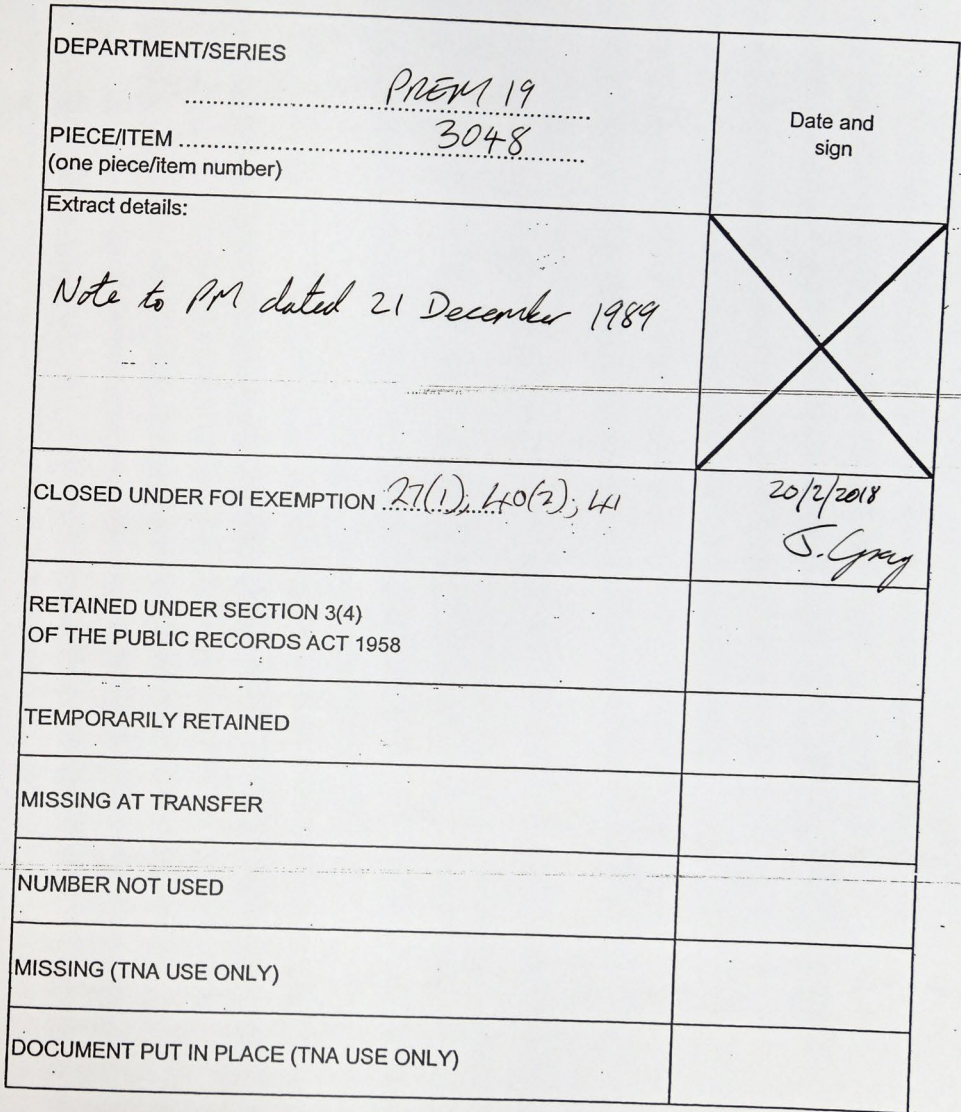 DEPARTMENT/SERIES
PREM 19
PIECE/ITEM 3048
(one piece/item number)
Date and
sign
Extract details:
Note to PM dated 21 December 1989
CLOSED UNDER FOI EXEMPTION 27(1); 40(2); 41
20/2/2018
RETAINED UNDER SECTION 3(4)
OF THE PUBLIC RECORDS ACT 1958
TEMPORARILY RETAINED
MISSING AT TRANSFER
NUMBER NOT USED
MISSING (TNA USE ONLY)
DOCUMENT PUT IN PLACE (TNA USE ONLY)